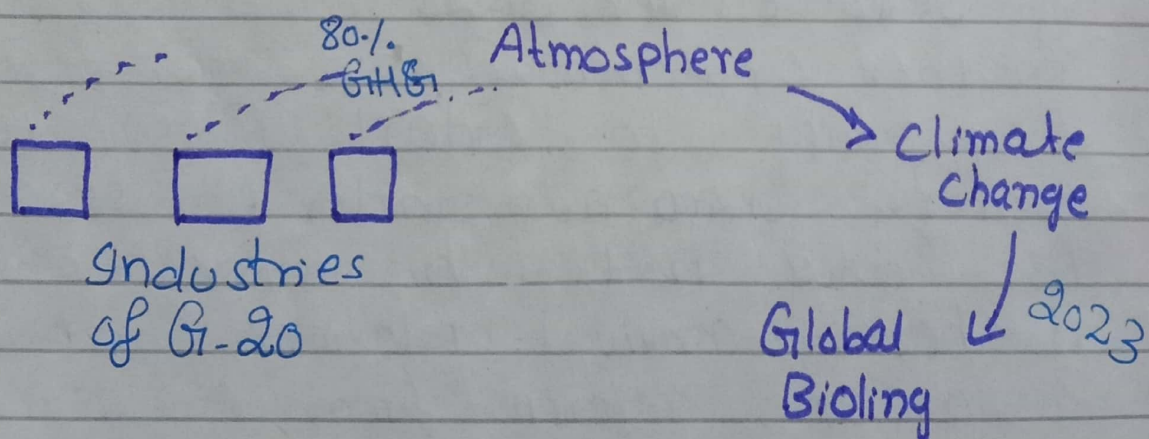 80%
GHG
Atmosphere
Climate
Change
Industries
of G-20
2023
Global
Bioling